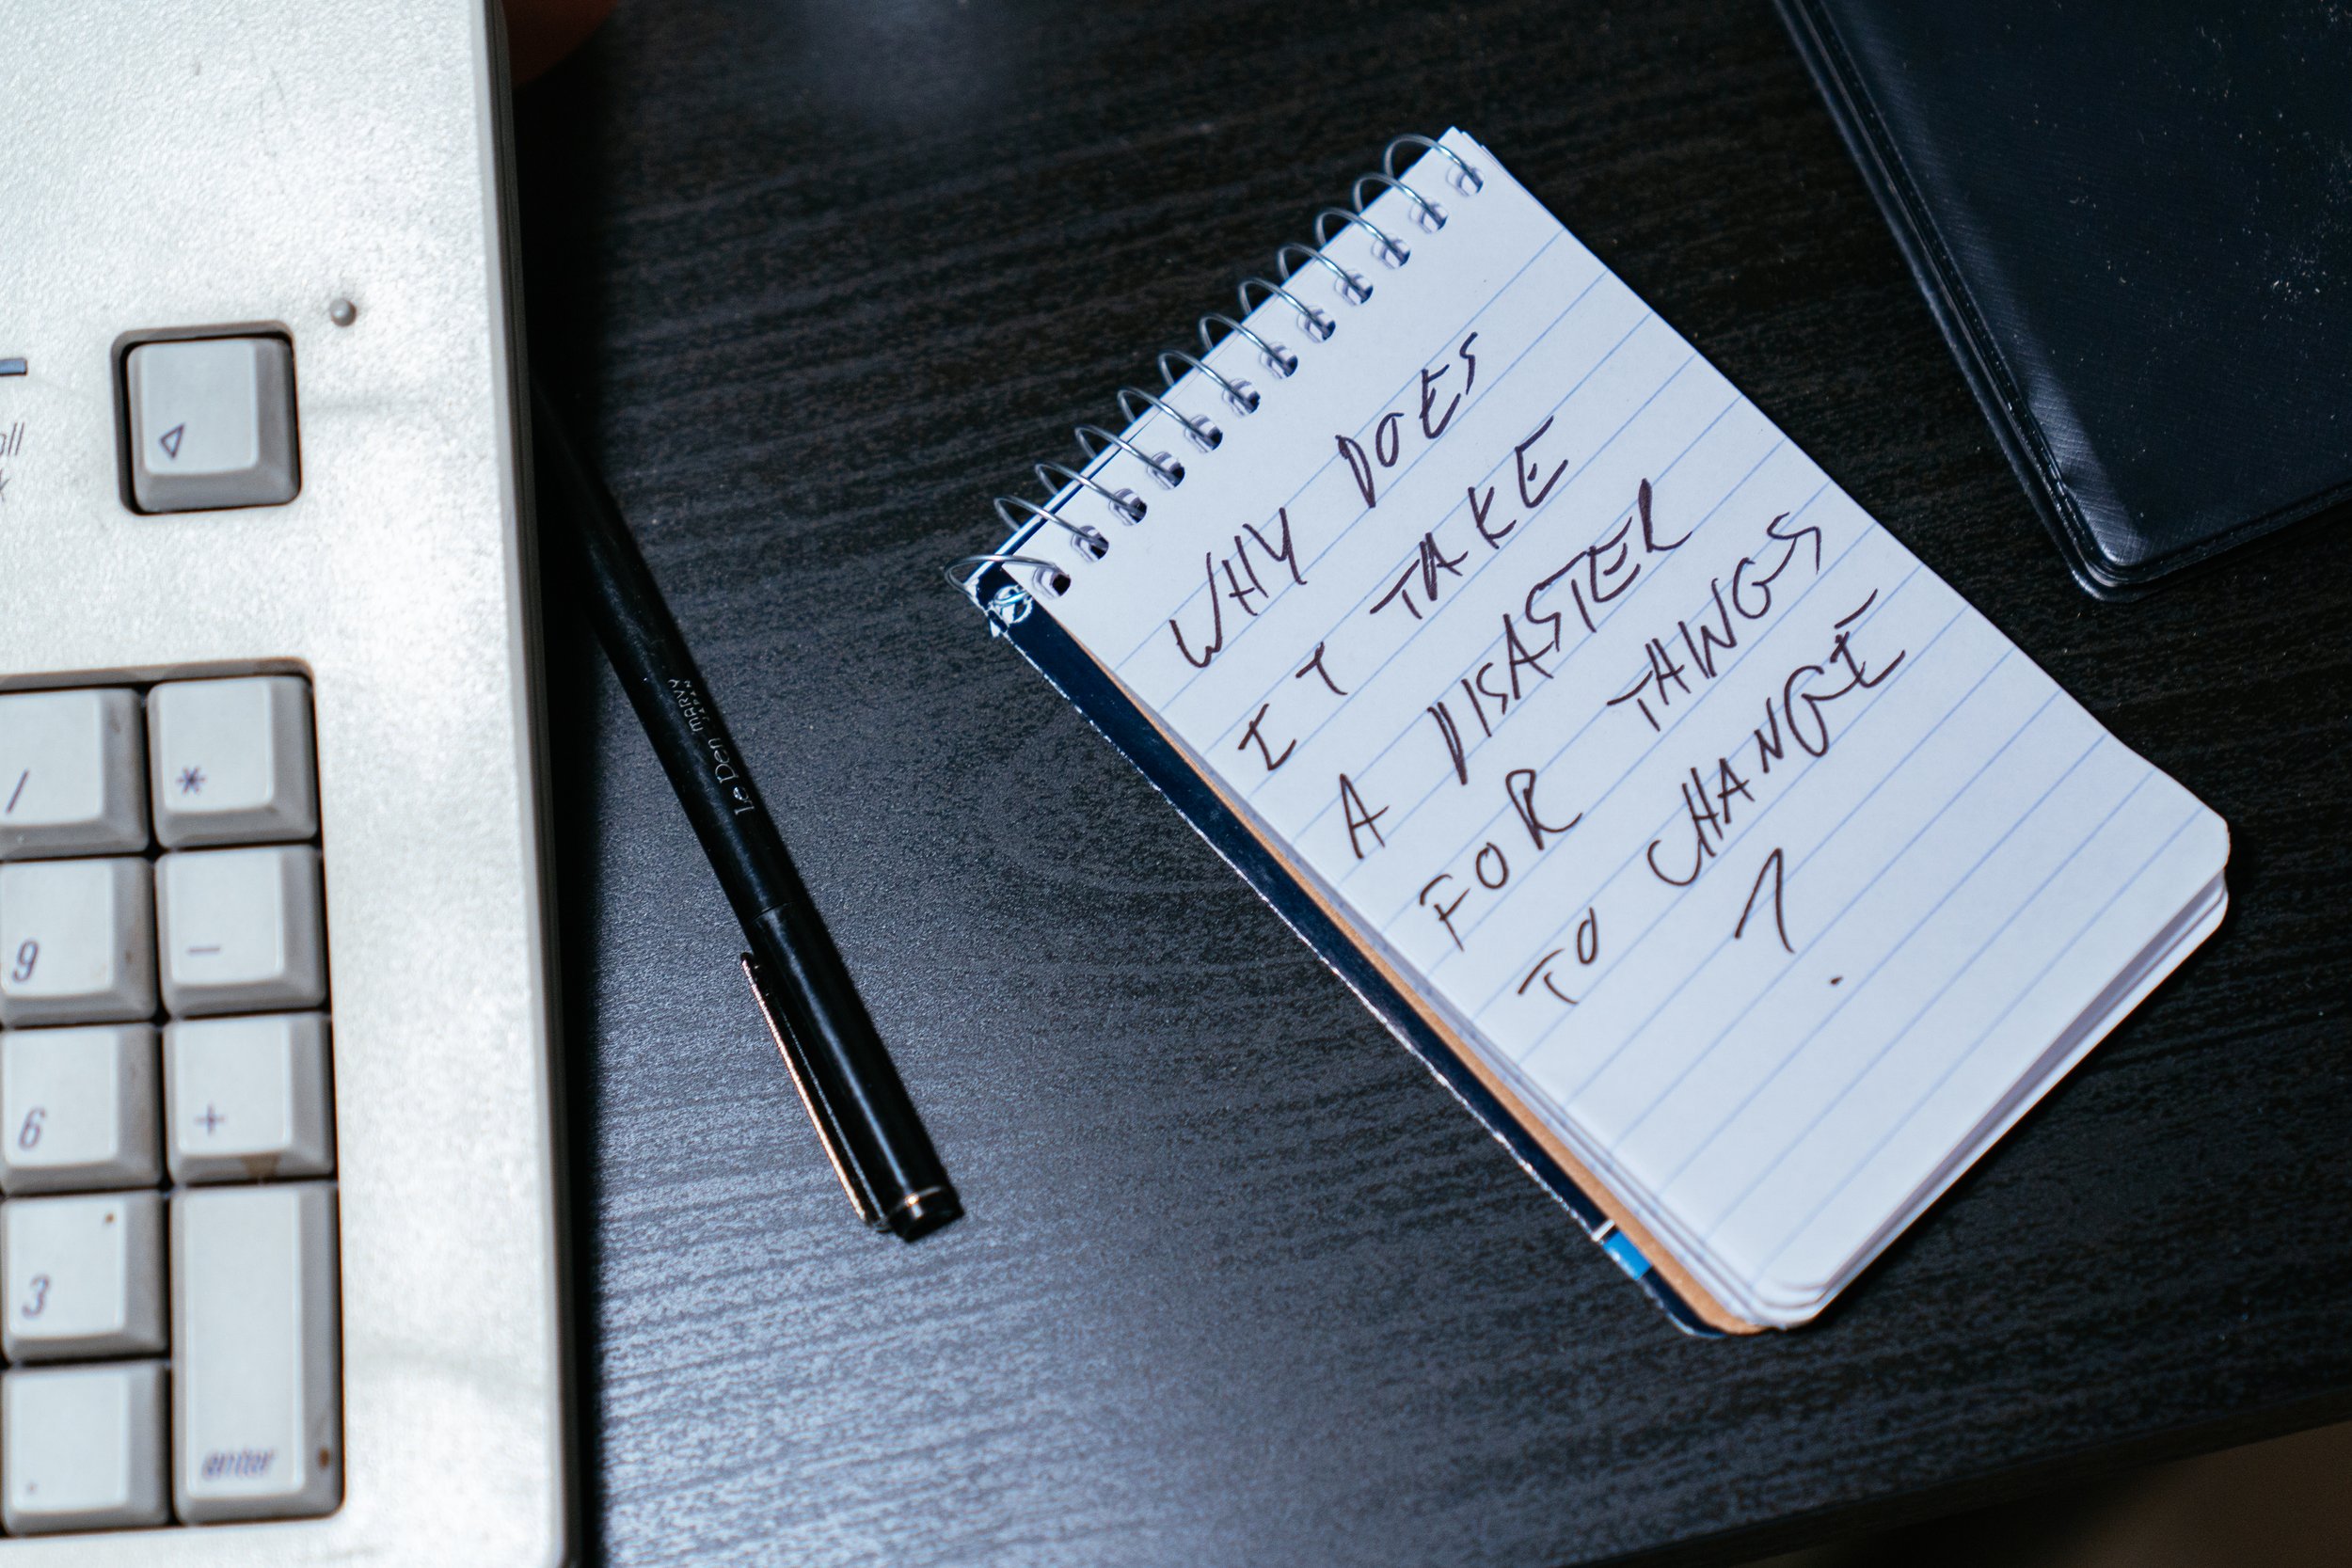 / *
9 -
6 +
3
. enter
Le Pen MARVY
JAPAN
WHY DOES
IT TAKE
A DISASTER
FOR THINGS
TO CHANGE
?